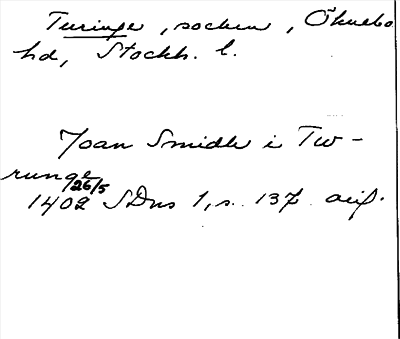 Turinge, socken, Öknebo
hd, Stockh. l.
Joan Smidh i Tw-
runge
26/5
1402 SDns 1, s. 137 avskr.